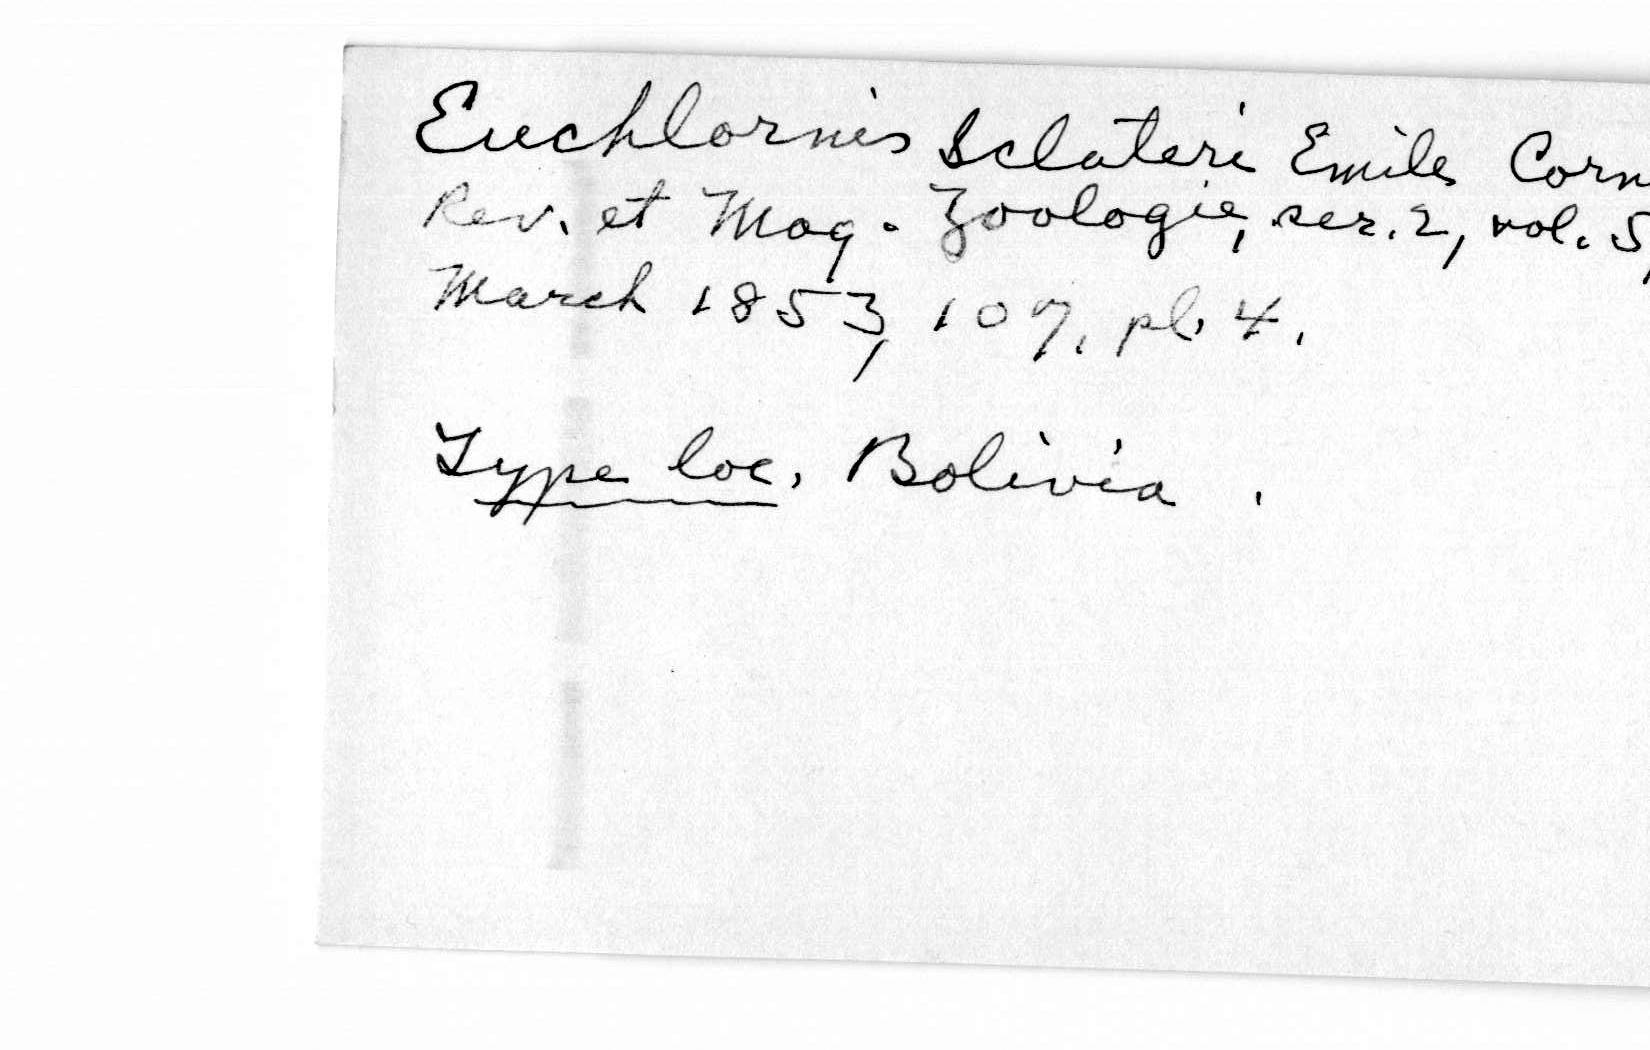 Euchlornis Sclateri Emile Corn
Rev. et Mag. Zoologie, ser. 2, vol. 5,
March 1853, 107, pl. 4.
Type loc. Bolivia.